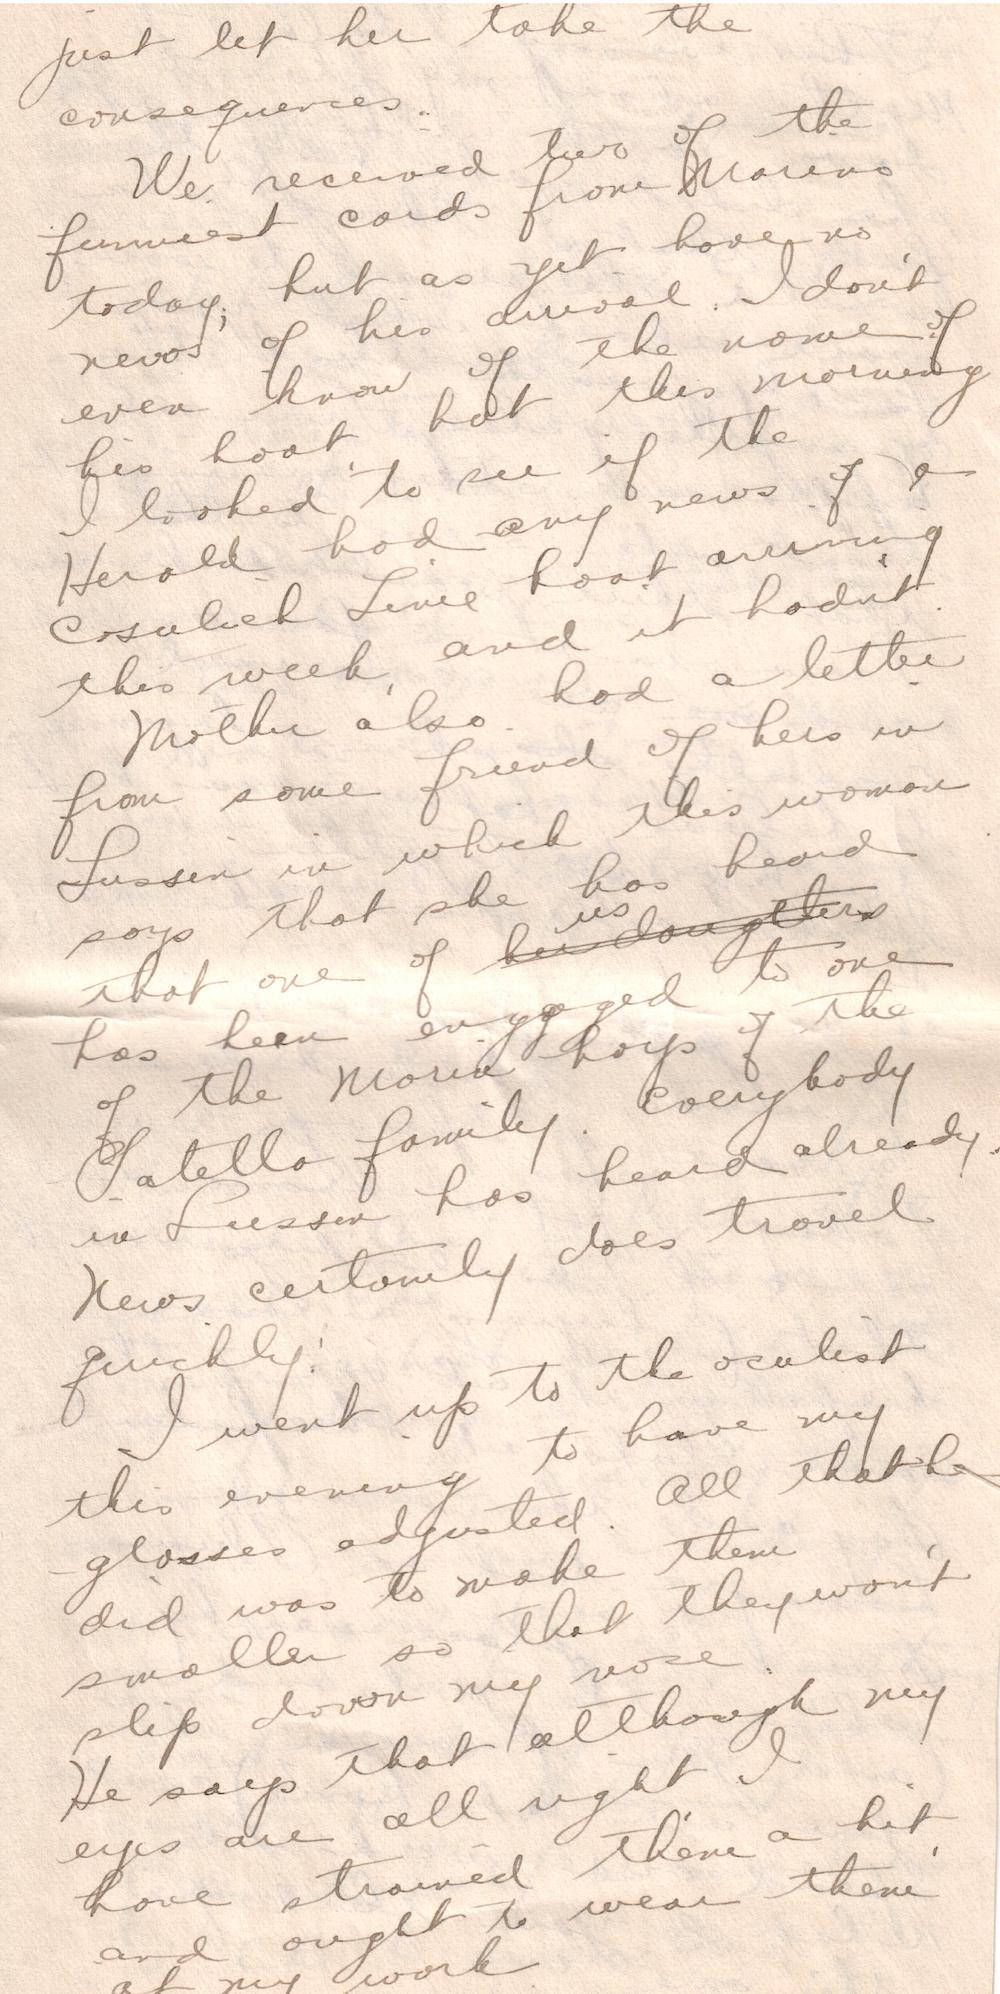 just let her take the
consequences.
We received two of the
funniest cards from Marino
today, but as yet have no
news of his arrival. I don't
even know of the name of
his boat, but this morning
I looked to see if the
Herald had any news of a
Cosulich Line boat arriving
this week, and it hadn't.
Mother also had a letter
from some friend of hers in
Lussin in which this woman
says that she has heard
that one of her daughters us
has been engaged to one
of the Morin boys of the
Patella family. Everybody
in Lussin has heard already.
News certainly does travel
quickly!
I went up to the oculist
this evening to have my
glasses adjusted. All that he
did was to make them
smaller so that they won't
slip down my nose.
He says that although my
eyes are all right I
have strained them a bit,
and ought to wear them
at my work